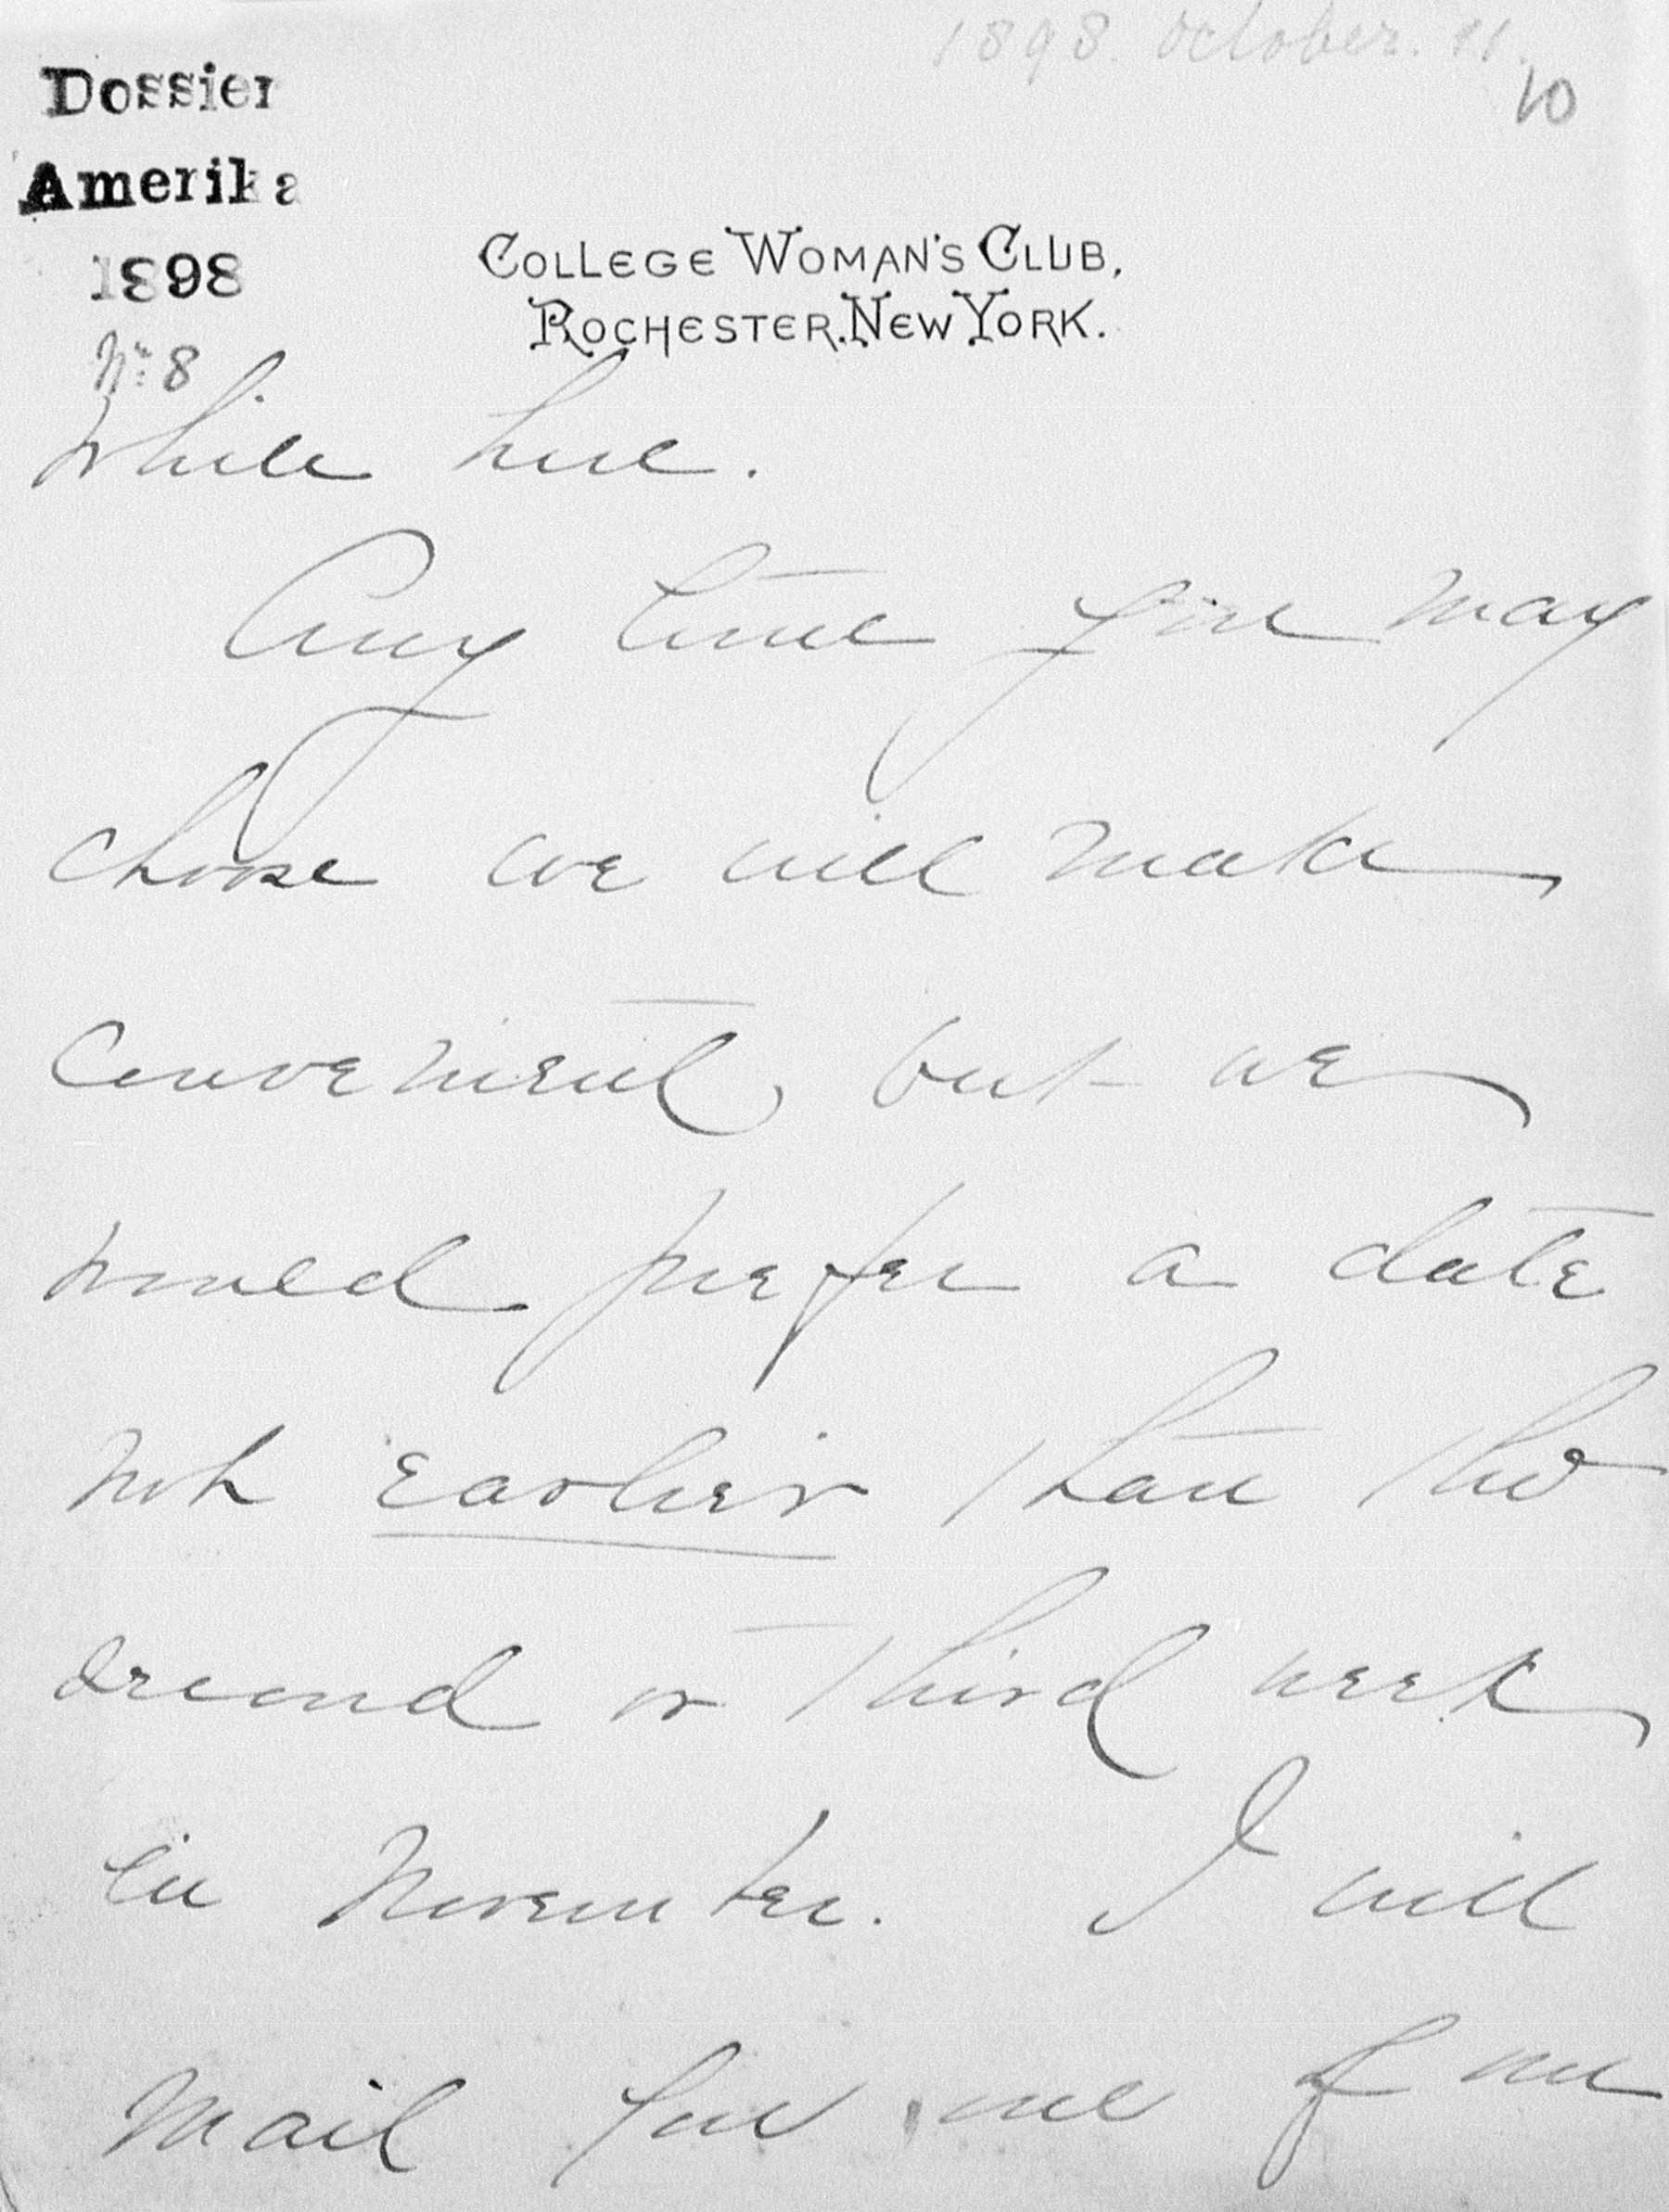 1898. October. 11.
10
Dossier
Amerika
1898
No: 8
COLLEGE WOMAN'S CLUB,
ROCHESTER, NEW YORK.
while here.
Any time you may
choose we will make
convenient, but we
would prefer a date
not earlier than the
second or third week
in November. I will
mail you one of our